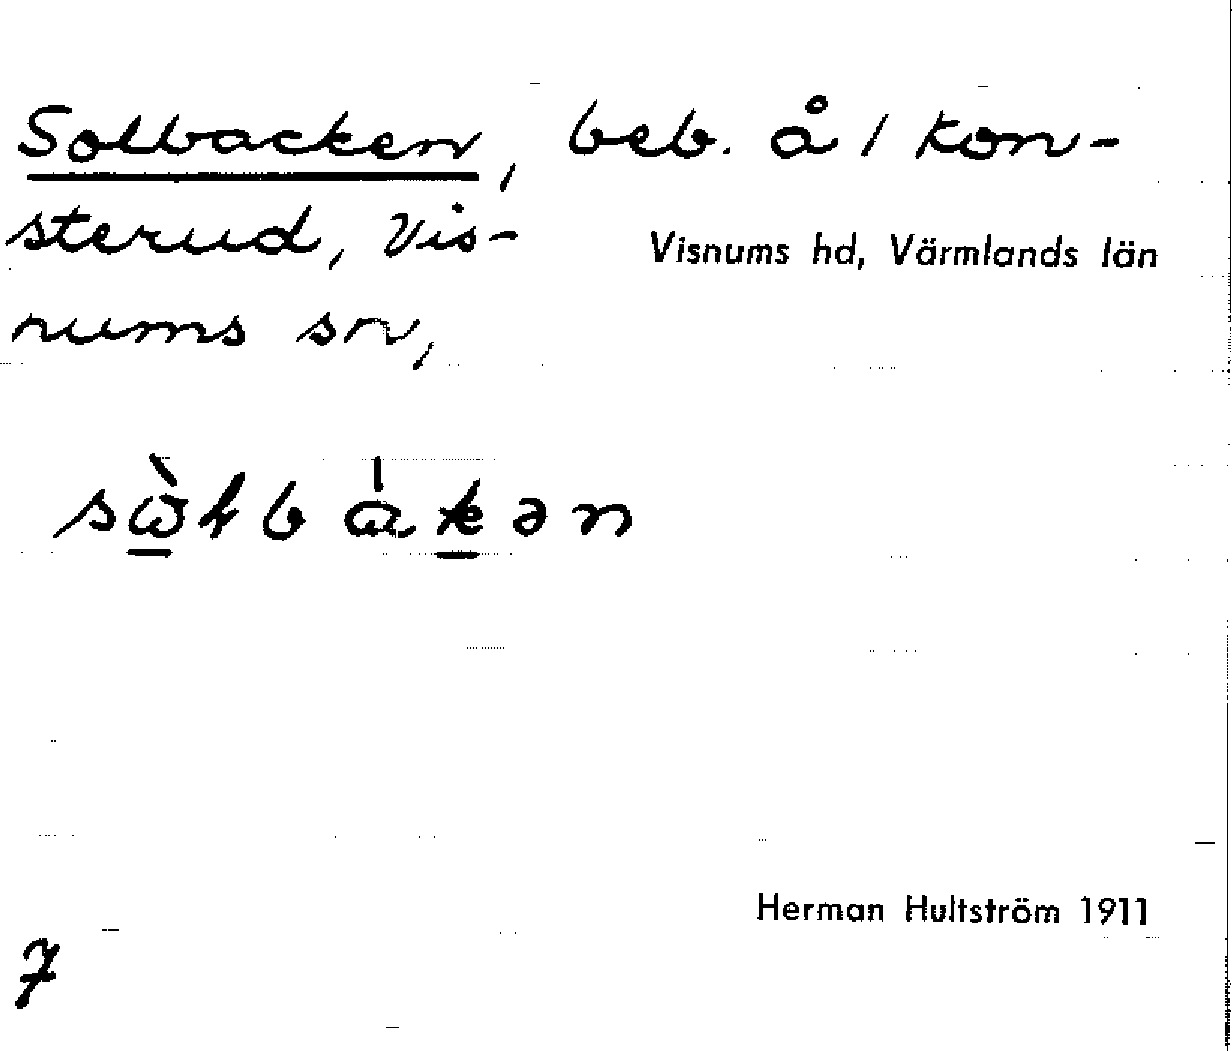 Solbacken, beb. å 1 Kon-
sterud, Vis-
nums sn,
Visnums hd, Värmlands län
Herman Hultström 1911
7